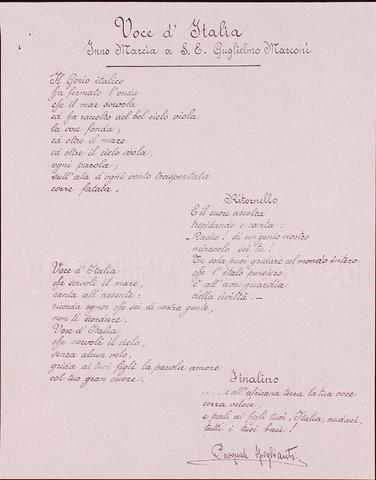 Voce d' Italia
Inno Marcia a S. E. Guglielmo Marconi
Il Genio italico
ha fermato l'onda
che il mar sorvola
ed ha raccolto del bel cielo viola
la voce fonda;
ed oltre il mare
ed oltre il cielo vola,
ogni parola;
sull'ala d'ogni vento trasportata
corre fatata.
Ritornello
E il cuore ascolta
trepidando e canta:
Radio! di un genio nostro
miracolo sei tu!
Tu sola puoi gridare al mondo intero
che l'italo pensiero
è all'avanguardia
della civiltà. —
Voce d'Italia
che sorvoli il mare,
canta all'assente:
ricorda ognor che sei di nostra gente,
non ti scordare.
Voce d'Italia
che sorvoli il cielo,
senza alcun velo,
grida ai tuoi figli la parola amore
col tuo gran cuore.
Finalino
.... e all'africana terra la tua voce
corra veloce,
e porti ai figli tuoi, Italia, audaci,
tutti i tuoi baci!
Pasquale